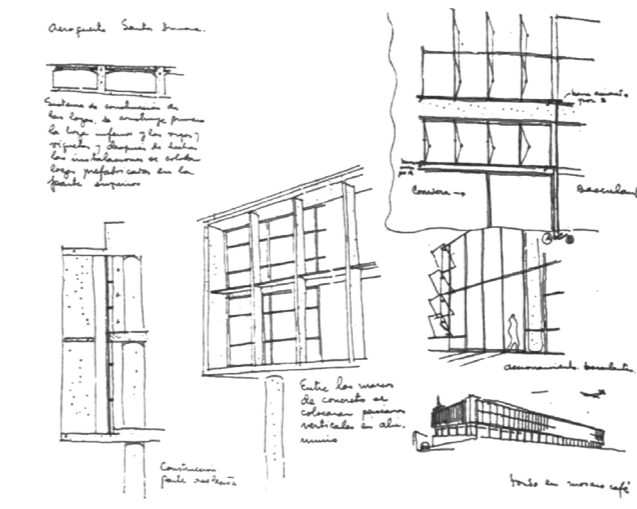 Aeropuerto Santos Dumont.
Sistema de construccion de
las lozas. Se construye primero
la loza inferior y las vigas y
viguetas y despues de hechas
las instalaciones se colocan
lozas prefabricadas en la
parte superior
Entre los marcos
de concreto se
colocaran persianas
verticales en alu-
minio
Construccion
parte
por B
Corredera →
Basculant
A B
accionamiento basculante
fondo en mosaico café